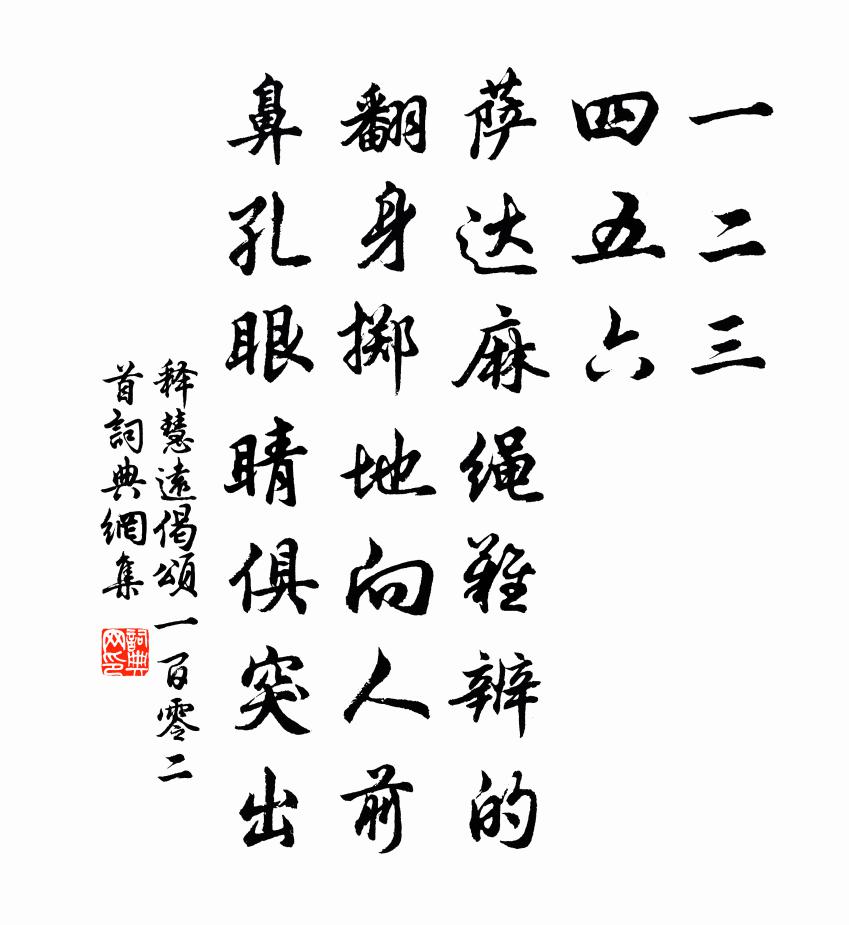 一二三
四五六
萨达麻绳难辨的
翻身掷地向人前
鼻孔眼睛俱突出
释慧遠偈頌一百零二
首詞典網集
詞典
网印